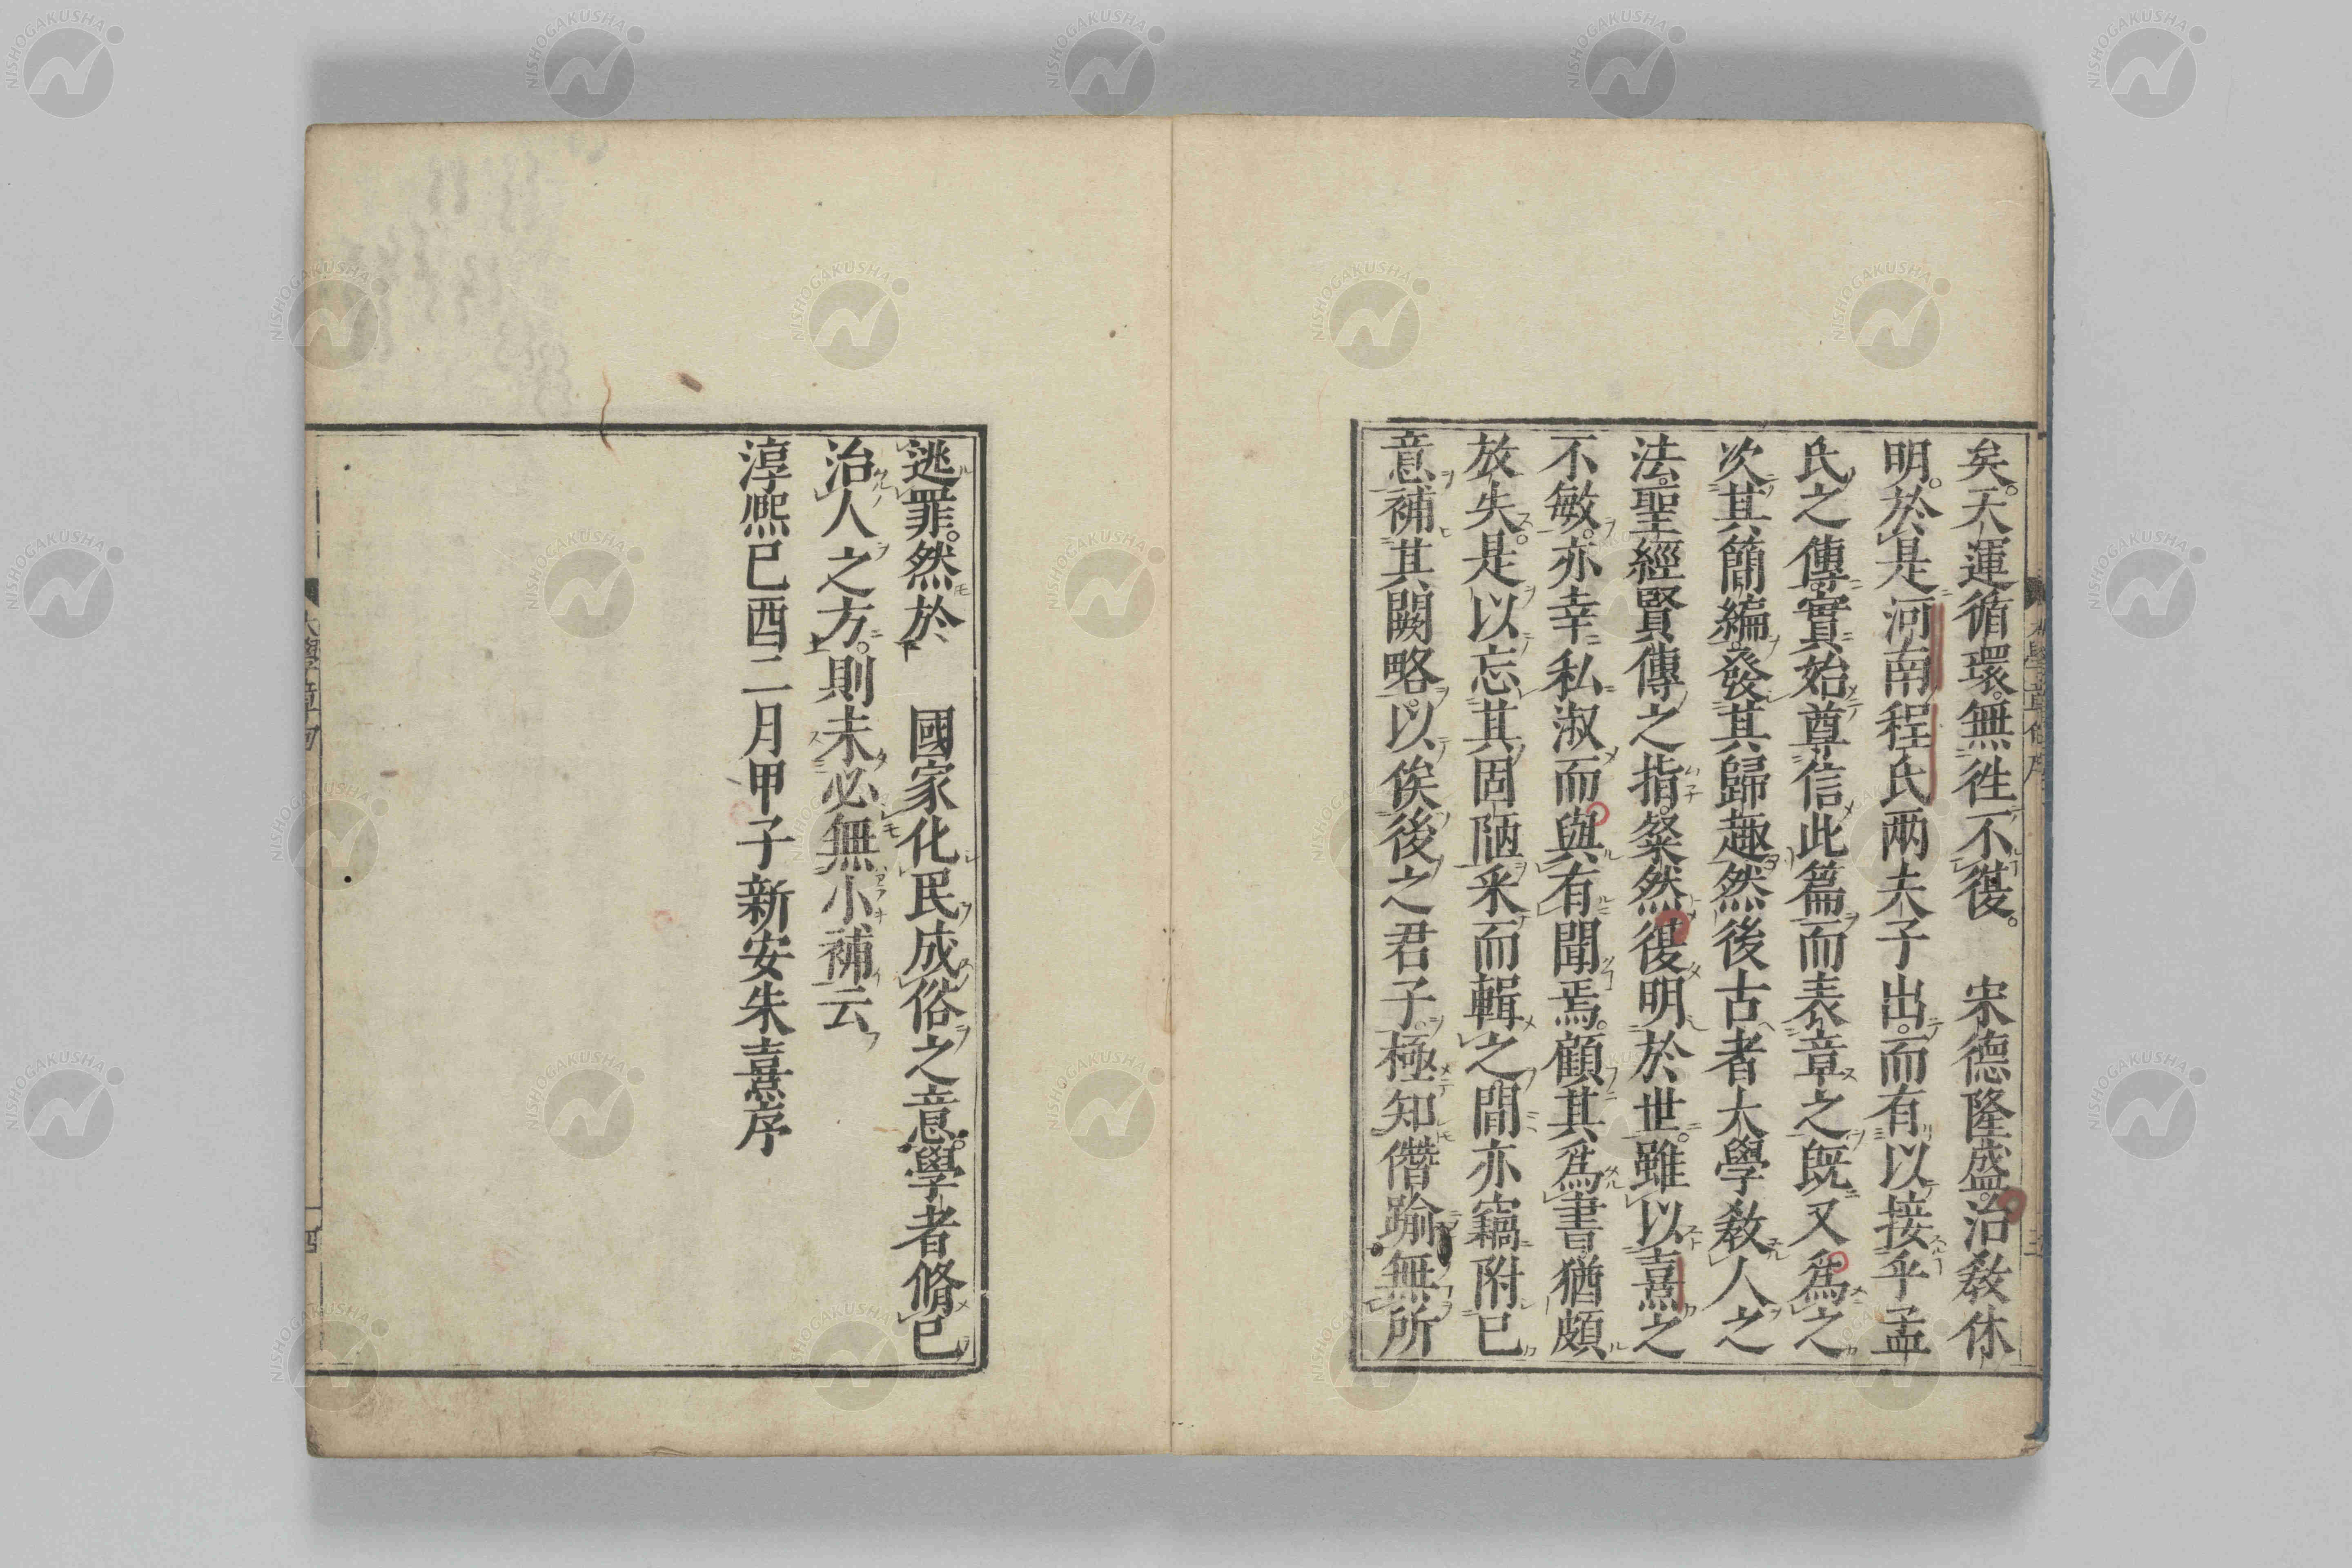 矣。天運循環。無徃不復。　宋德隆盛。治教休
明。於是河南程氏兩夫子出。而有以接乎孟
氏之傳。實始尊信此篇而表章之。既又爲之
次其簡編。發其歸趣。然後古者大學教人之
法。聖經賢傳之指。粲然復明於世。雖以熹之
不敏。亦幸私淑而與有聞焉。顧其爲書猶頗
放失。是以忘其固陋。采而輯之。間亦竊附己
意。補其闕略。以俟後之君子。極知僭踰無所
逃罪。然於　國家化民成俗之意。學者脩己
治人之方。則未必無小補云
淳熈己酉二月甲子新安朱熹序
大學章句
四
NISHOGAKUSHA